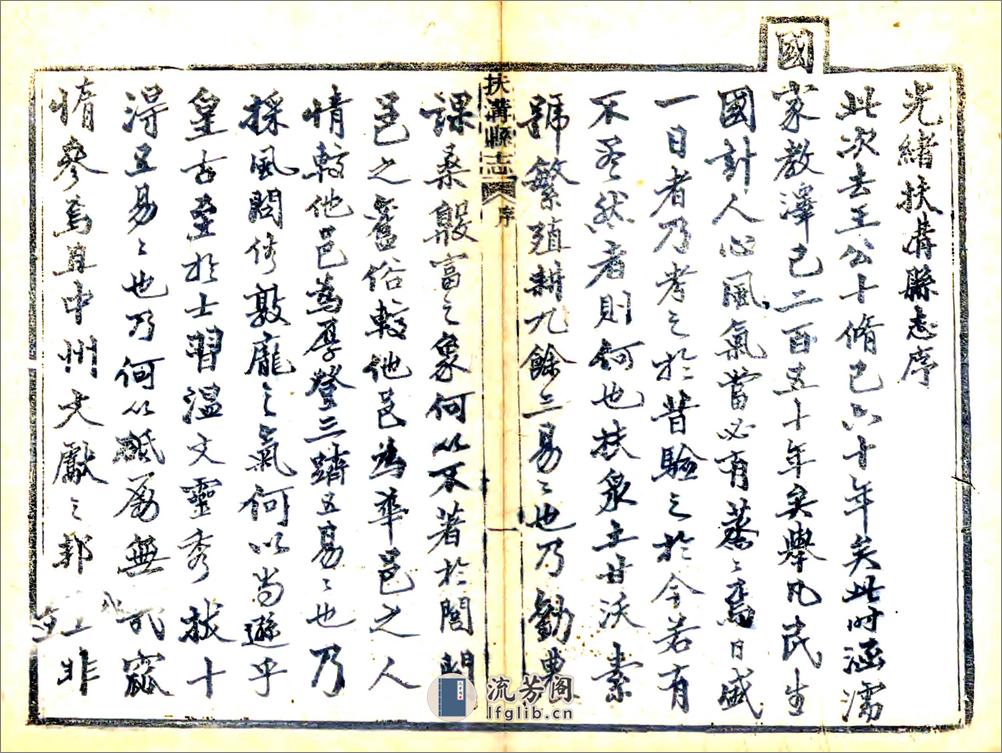 光緒扶溝縣志序
此次去王公十脩已六十年矣此時涵濡
國
家教澤已二百五十年矣舉凡民生
國計人心風氣當必有蒸〻焉日盛
一日者乃考之於昔驗之於今若有
不盡然者則何也扶泉土甘沃素
號繁殖耕九餘三易〻也乃勸農
扶溝縣志
序
一
課桑殷富之象何以不著於閭閻
邑之舊俗較他邑為率邑之人
情較他邑為厚登三躋五易〻也乃
採風問俗敦龐之氣何以尚遜乎
皇古至於士習溫文靈秀拔十
得五易〻也乃何以砥厲無
惰參焉且中州文獻之邦 非
流芳阁
lfglib.cn